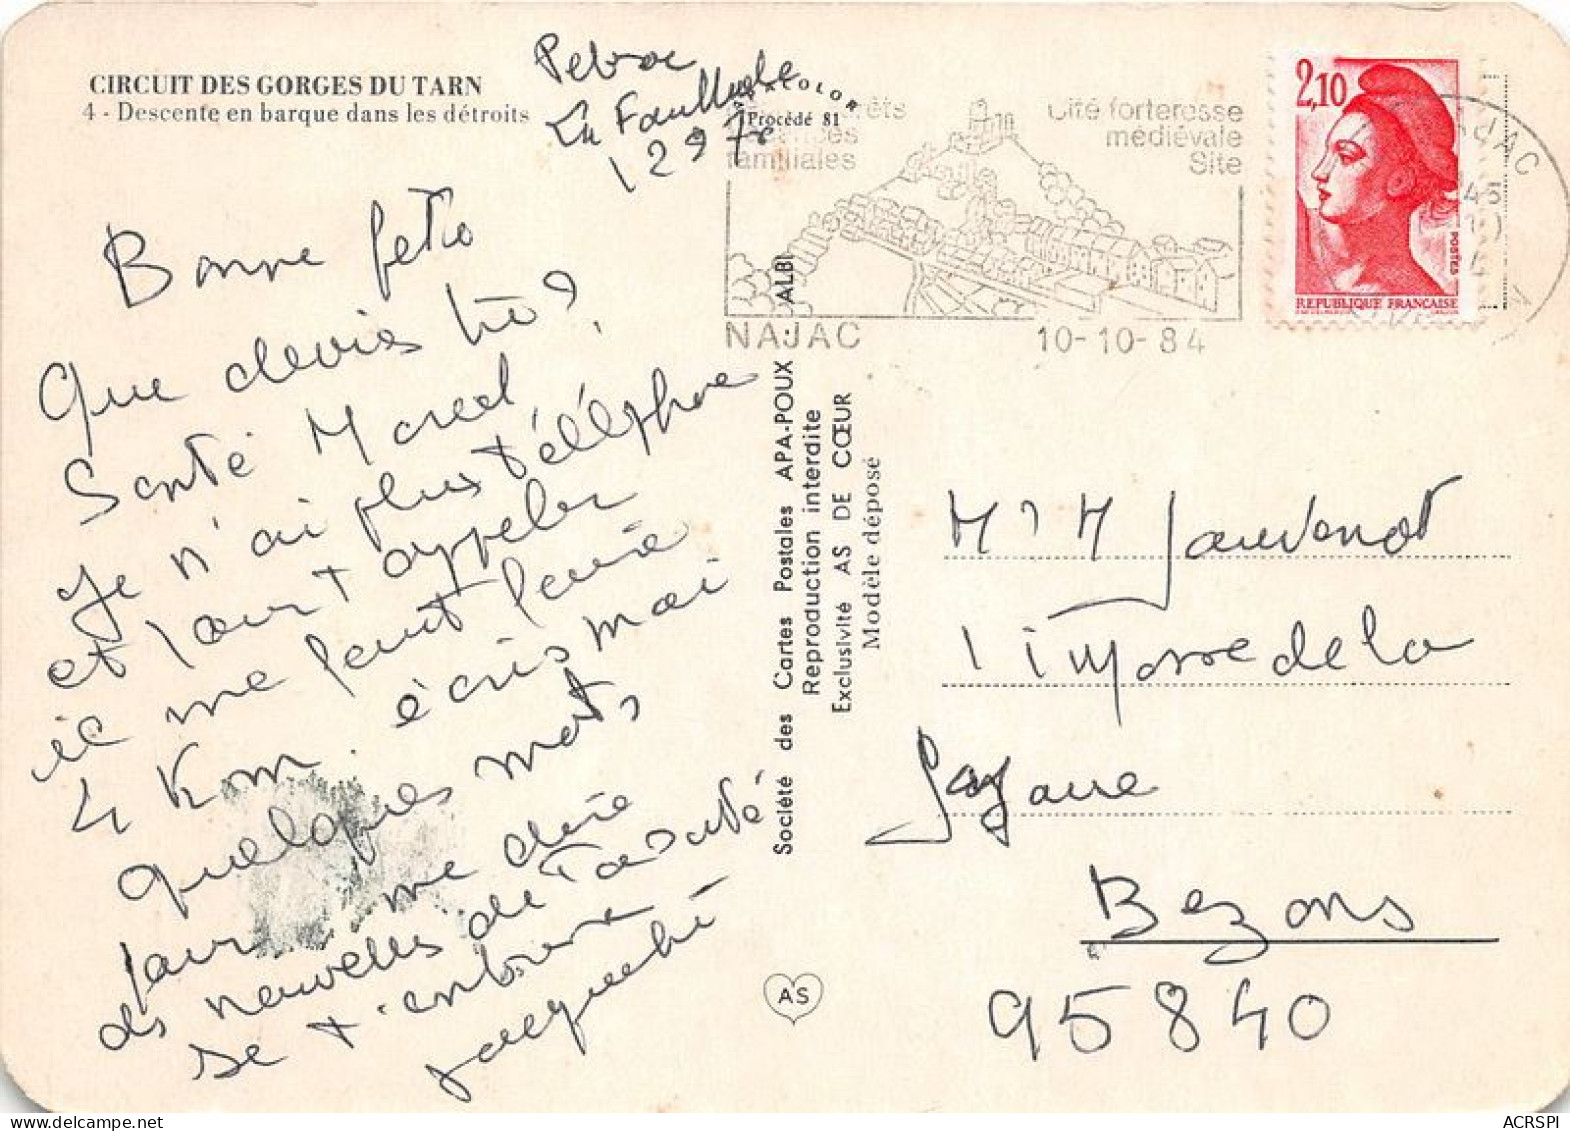 CIRCUIT DES GORGES DU TARN
4 - Descente en barque dans les détroits
La Fouillade
COLOR
Procédé 81
familiales
Cité forteresse
médiévale
Site
NAJAC
10-10-84
2,10
POSTES
REPUBLIQUE FRANÇAISE
Bonne fete
Que devies tu?
Santé Marcel
Je n'ai plus téléphone
et pour t appeler
il me faut faire
4 Km. écris moi
quelques mots
pour me dire
des nouvelles de ta santé
Je t'embrasse
Société des Cartes Postales APA-POUX - ALBI
Reproduction interdite
Exclusivité AS DE CŒUR
Modèle déposé
AS
1 impasse de la
Bezons
95840
ACRSPI